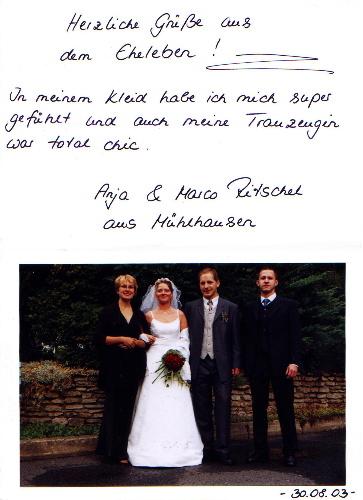 Herzliche Grüße aus
dem Eheleben!
In meinem Kleid habe ich mich super
gefühlt und auch meine Trauzeugin
war total chic.
Anja & Marco Ritschel
aus Mühlhausen
- 30.08.03 -